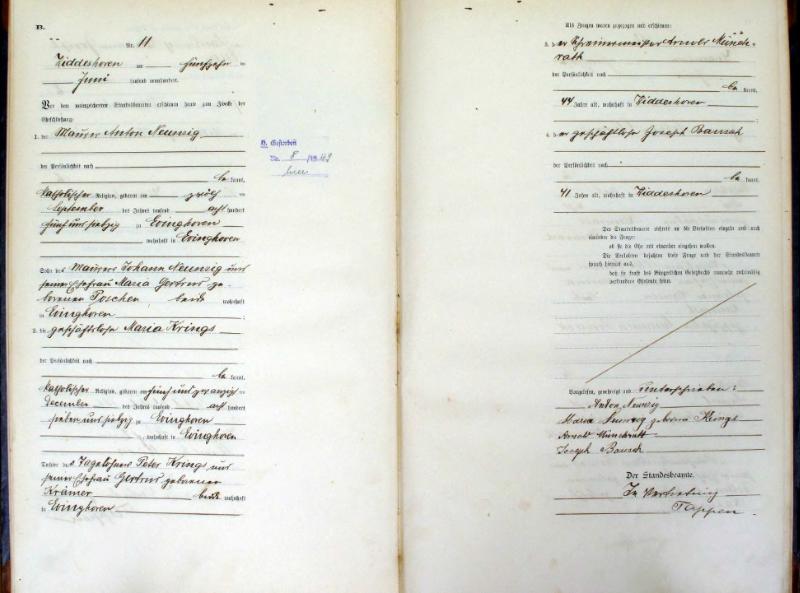 B.
Nr. 11
Hiddeshoven am fünfzehn ten
Juni tausend neunhundert
Vor dem unterzeichneten Standesbeamten erschienen heute zum Zweck der
Eheschließung:
1. der Maurer Anton Neunzig
der Persönlichkeit nach
be kannt,
katholischer Religion, geboren am zwölf ten
September des Jahres tausend acht hundert
fünf und siebzig zu Evinghoven
, wohnhaft in Evinghoven
Sohn des Maurers Johann Neunzig und
seiner Ehefrau Maria Gertrud ge-
borenen Poschen, beide wohnhaft
in Evinghoven
2. die geschäftslose Maria Krings
der Persönlichkeit nach
be kannt,
katholischer Religion, geboren am fünf und zwanzig ten
Dezember des Jahres tausend acht hundert
sieben und siebzig zu Evinghoven
, wohnhaft in Evinghoven
Tochter des Tagelöhners Peter Krings und
seiner Ehefrau Gertrud geborenen
Krämer beide wohnhaft
in Evinghoven
H. Gestorben
Nr. 8 /19 49
Als Zeugen waren zugezogen und erschienen:
3. der Schreinermeister Arnold Münch-
rath
der Persönlichkeit nach
be kannt,
44 Jahre alt, wohnhaft in Hiddeshoven
4. der geschäftslose Joseph Bausch
der Persönlichkeit nach
be kannt,
41 Jahre alt, wohnhaft in Hiddeshoven
Der Standesbeamte richtete an die Verlobten einzeln und nach
einander die Frage:
ob sie die Ehe mit einander eingehen wollen.
Die Verlobten bejahten diese Frage und der Standesbeamte
sprach hierauf aus,
daß sie kraft des Bürgerlichen Gesetzbuchs nunmehr rechtmäßig
verbundene Eheleute seien.
Vorgelesen, genehmigt und Unterschrieben:
Anton Neunzig
Maria Neunzig geborene Krings
Arnold Münchrath
Joseph Bausch
Der Standesbeamte.
In Vertretung
Tappen